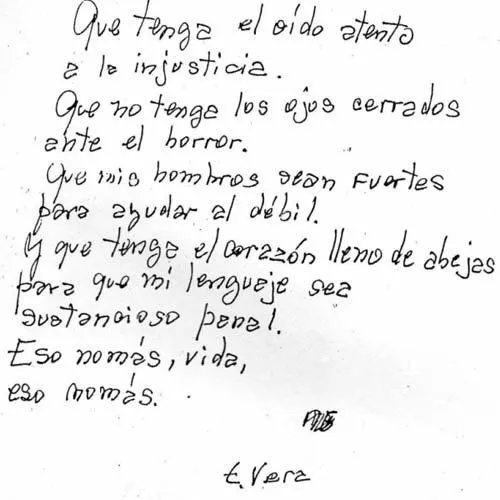 Que tenga el oído atento
a la injusticia.
Que no tenga los ojos cerrados
ante el horror.
Que mis hombros sean fuertes
para ayudar al débil.
Y que tenga el corazón lleno de abejas
para que mi lenguaje sea
sustancioso panal.
Eso nomás, vida,
eso nomás.
E. Vera